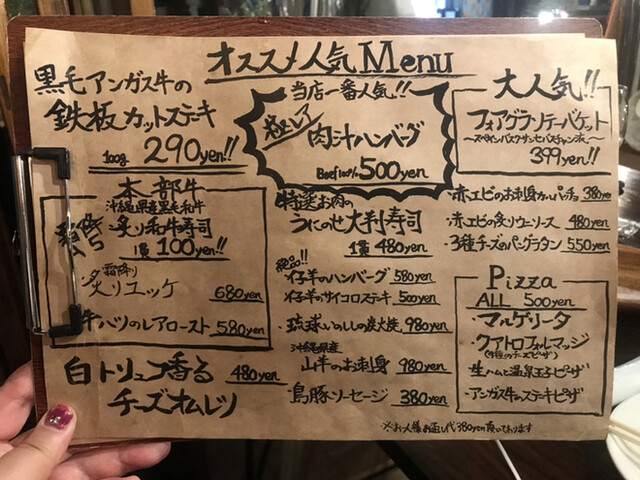 オススメ人気Menu
黒毛アンガス牛の
鉄板カットステーキ
100g 290yen!!
当店一番人気!!
肉汁ハンバーグ
Beef100% 500yen
大人気!!
フォアグラソテーバケット
～スペインバスクサンセバスチャン流～
399yen!!
本部牛
沖縄県産黒毛和牛
炙り和牛寿司
1貫 100yen!!
霜降り
炙りユッケ 680yen
牛ハツのレアロースト 580yen
白トリュフ香る 480yen
チーズオムレツ
特選お肉の
うにのせ大判寿司
1貫 480yen
絶品!!
・仔羊のハンバーグ 580yen
・仔羊のサイコロステーキ 500yen
・琉球いのししの炭火焼 980yen
沖縄県産
・山羊のお刺身 980yen
・島豚ソーセージ 380yen
・赤エビのお刺身カルパッチョ 380yen
・赤エビの炙りウニソース 480yen
・3種チーズのパングラタン 550yen
Pizza
ALL 500yen
・マルゲリータ
・クアトロフォルマッジ
(4種のチーズピザ)
・生ハムと温泉玉子ピザ
・アンガス牛のステーキピザ
※お一人様お通し代380yen頂いております